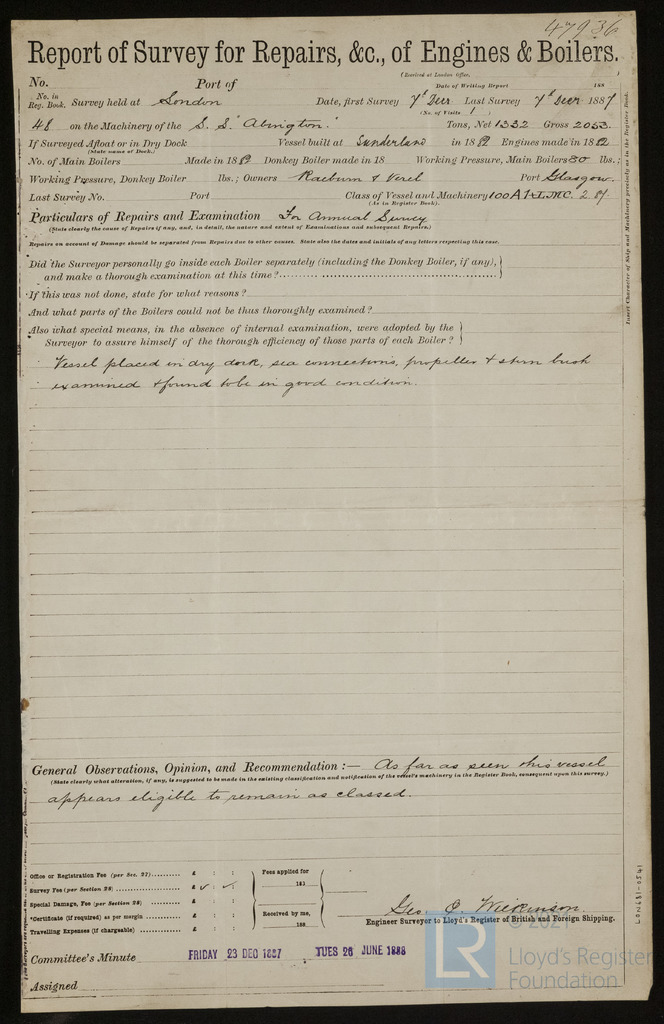 47936
Report of Survey for Repairs, &c., of Engines & Boilers.
(Received at London Office.
No. Port of Date of Writing Report 188
No. in Reg. Book. Survey held at London Date, first Survey 7th Decr Last Survey 7th Decr 1887
(No. of Visits 1 )
48 on the Machinery of the S. S. "Abington." Tons, Net 1332 Gross 2053.
If Surveyed Afloat or in Dry Dock Vessel built at Sunderland in 1882 Engines made in 1882
(State name of Dock.)
No. of Main Boilers Made in 1882 Donkey Boiler made in 18 Working Pressure, Main Boilers 80 lbs.;
Working Pressure, Donkey Boiler lbs.; Owners Raeburn & Verel Port Glasgow.
Last Survey No. Port Class of Vessel and Machinery 100A1 L.M.C. 2.87
(As in Register Book).
Particulars of Repairs and Examination For Annual Survey
(State clearly the cause of Repairs if any, and, in detail, the nature and extent of Examinations and subsequent Repairs.)
Repairs on account of Damage should be separated from Repairs due to other causes. State also the dates and initials of any letters respecting this case.
Did the Surveyor personally go inside each Boiler separately (including the Donkey Boiler, if any),
and make a thorough examination at this time?
If this was not done, state for what reasons?
And what parts of the Boilers could not be thus thoroughly examined?
Also what special means, in the absence of internal examination, were adopted by the
Surveyor to assure himself of the thorough efficiency of those parts of each Boiler?
Vessel placed in dry dock, sea connections, propeller & stern bush
examined & found to be in good condition.
Insert Character of Ship and Machinery precisely as in the Register Book.
General Observations, Opinion, and Recommendation :— As far as seen this vessel
(State clearly what alteration, if any, is suggested to be made in the existing classification and notification of the vessel's machinery in the Register Book, consequent upon this survey.)
appears eligible to remain as classed.
Office or Registration Fee (per Sec. 27) £ : : Fees applied for
Survey Fee (per Section 28) £ : : 188
Special Damage, Fee (per Section 28) £ : :
*Certificate (if required) as per margin £ : : Received by me,
Travelling Expenses (if chargeable) £ : : 188
Geo. C. Wilkinson
Engineer Surveyor to Lloyd's Register of British and Foreign Shipping.
Committee's Minute FRIDAY 23 DEC 1887 TUES 26 JUNE 1888
Assigned
LON681-0541
LR
© 2021
Lloyd's Register
Foundation